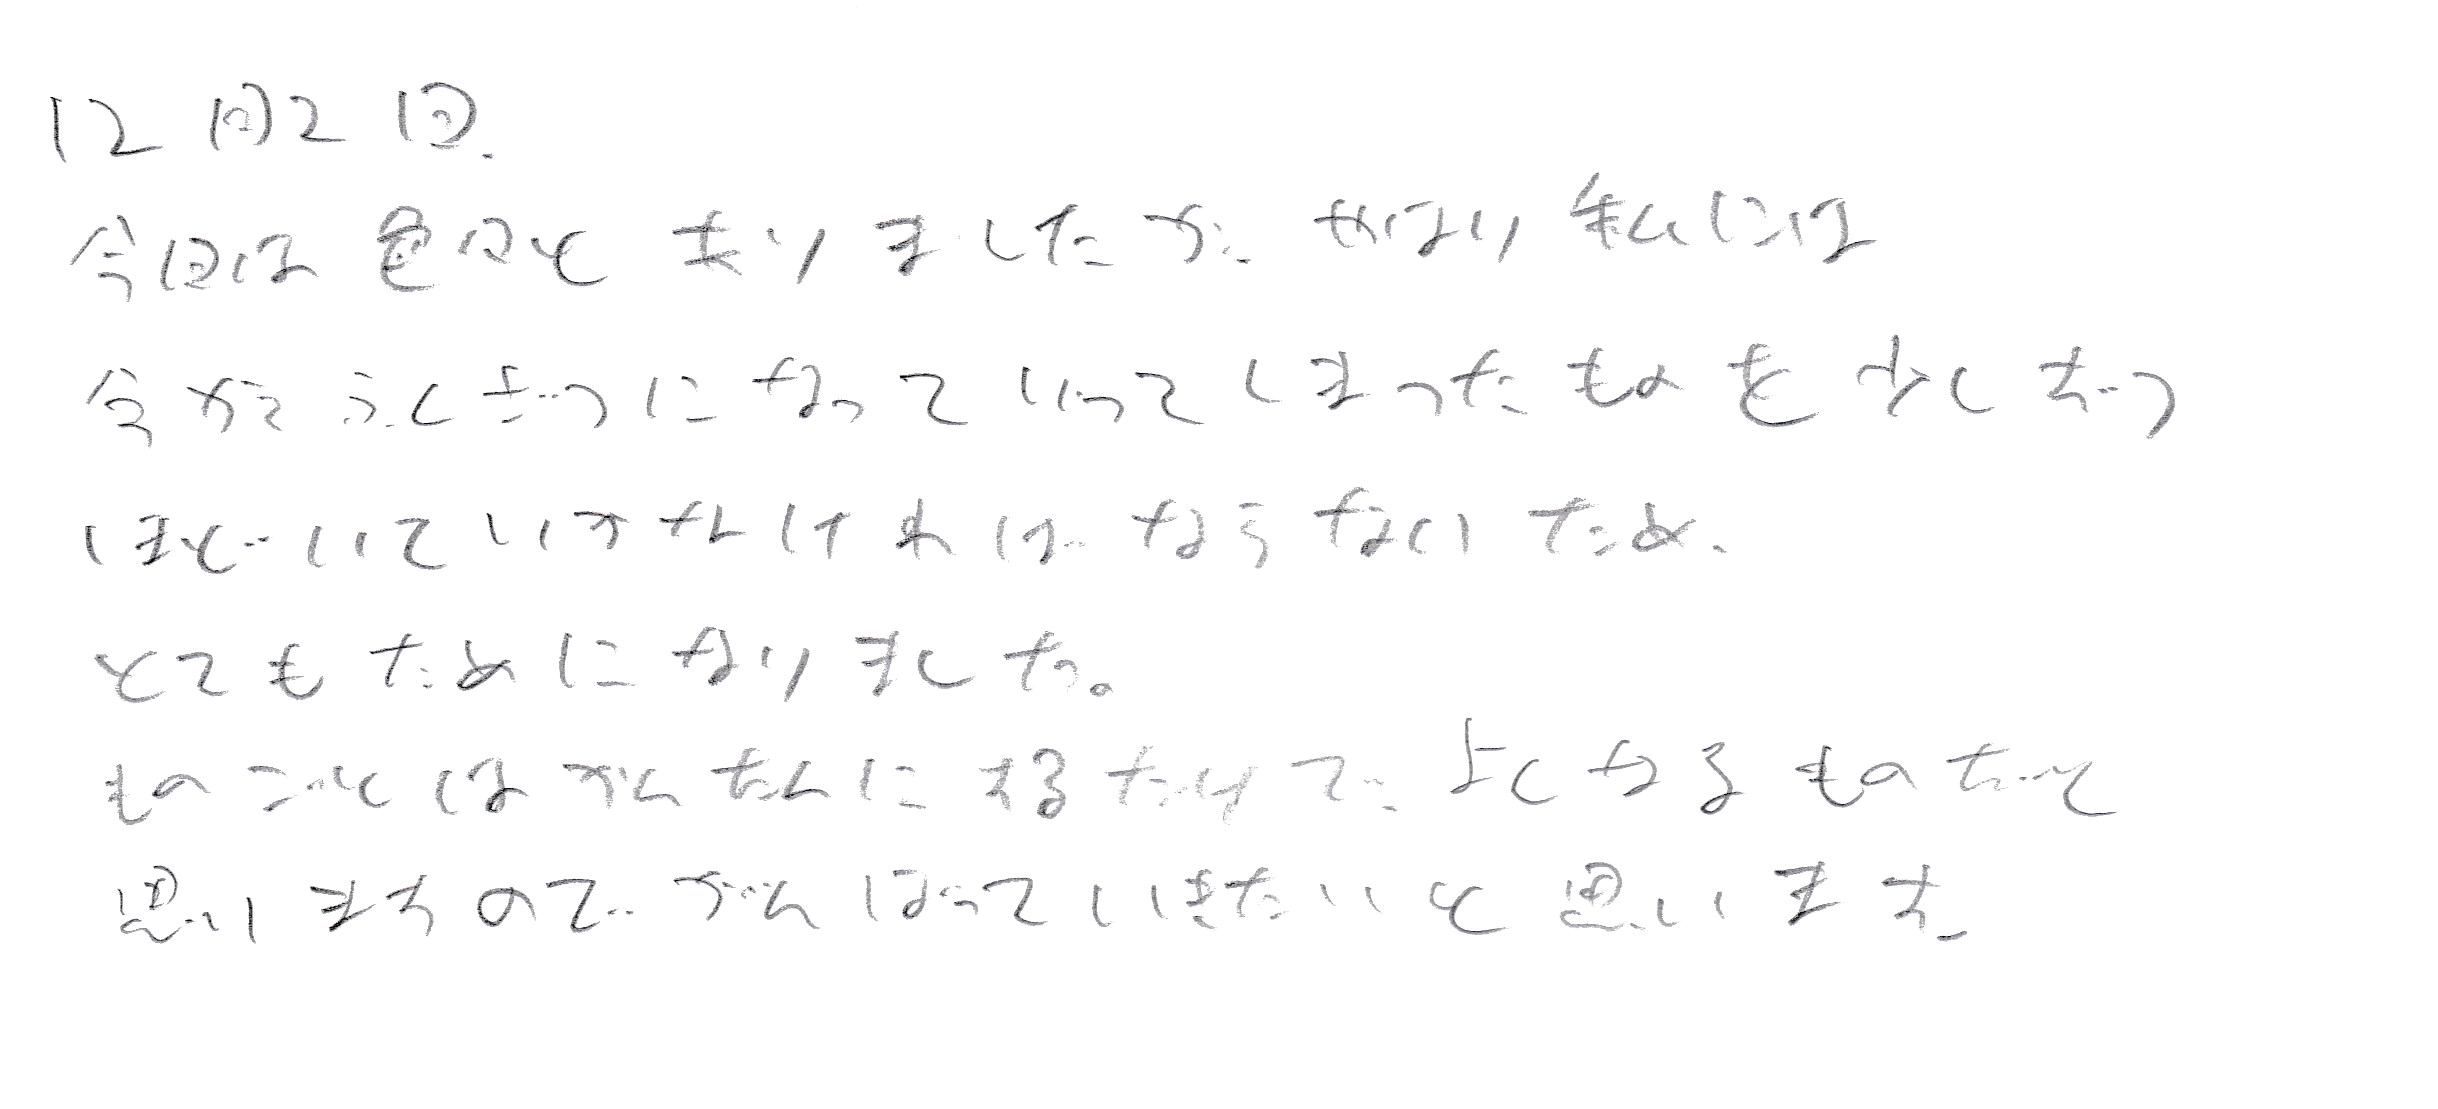 12回21回.
今回は色々とありましたが、やはり私には
今がふくざつになっていってしまったものを少しずつ
ほどいていかなければならないため、
とてもためになりました。
ものごとはかんたんにするだけで、よくなるものだと
思いますので、がんばっていきたいと思います。